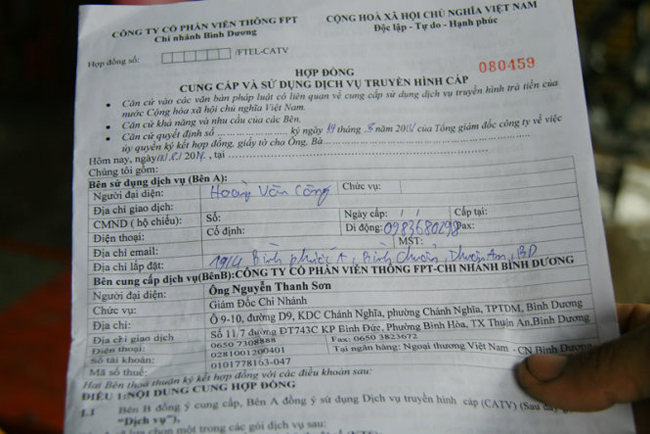 CÔNG TY CỔ PHẦN VIỄN THÔNG FPT
Chi nhánh Bình Dương
CỘNG HOÀ XÃ HỘI CHỦ NGHĨA VIỆT NAM
Độc lập - Tự do - Hạnh phúc
Hợp đồng số: /FTEL-CATV
080459
HỢP ĐỒNG
CUNG CẤP VÀ SỬ DỤNG DỊCH VỤ TRUYỀN HÌNH CÁP
• Căn cứ vào các văn bản pháp luật có liên quan về cung cấp sử dụng dịch vụ truyền hình trả tiền của
nước Cộng hòa xã hội chủ nghĩa Việt Nam.
• Căn cứ khả năng và nhu cầu của các Bên.
• Căn cứ quyết định số ........................ ký ngày 14 tháng 8 năm của Tổng giám đốc công ty về việc
ủy quyền ký kết hợp đồng, giấy tờ cho Ông, Bà
Hôm nay, ngày , tại
Chúng tôi gồm:
Bên sử dụng dịch vụ (Bên A):
Người đại diện: Hoàng Văn Công Chức vụ:
Địa chỉ giao dịch:
CMND ( hộ chiếu): Số: Ngày cấp: / / Cấp tại:
Điện thoại: Cố định: Di động: 0983680298 Fax:
Địa chỉ email: MST:
Địa chỉ lắp đặt: 19/4 Bình phước A, Bình chuẩn, Thuận An, BD
Bên cung cấp dịch vụ(BênB):CÔNG TY CỔ PHẦN VIỄN THÔNG FPT-CHI NHÁNH BÌNH DƯƠNG
Người đại diện: Ông Nguyễn Thanh Sơn
Chức vụ: Giám Đốc Chi Nhánh
Địa chỉ: Ô 9-10, đường D9, KDC Chánh Nghĩa, Phường Chánh Nghĩa, TPTDM, Bình Dương
Địa chỉ giao dịch Số 11,7 đường ĐT743C KP Bình Đức, Phường Bình Hòa, TX Thuận An,Bình Dương
Điện thoại: 0650 7308888 Fax: 0650 3823672
Số tài khoản: 0281001200401 Tại ngân hàng: Ngoại thương Việt Nam -CN Bình Dương
Mã số thuế: 0101778163-047
Hai Bên thỏa thuận ký kết hợp đồng với các điều khoản sau:
ĐIỀU 1:NỘI DUNG CUNG HỢP ĐỒNG
1.1 Bên B đồng ý cung cấp, Bên A đồng ý sử dụng Dịch vụ truyền hình cáp (CATV) (Sau đây
"Dịch vụ"),
lựa chọn một trong các gói dịch vụ sau: